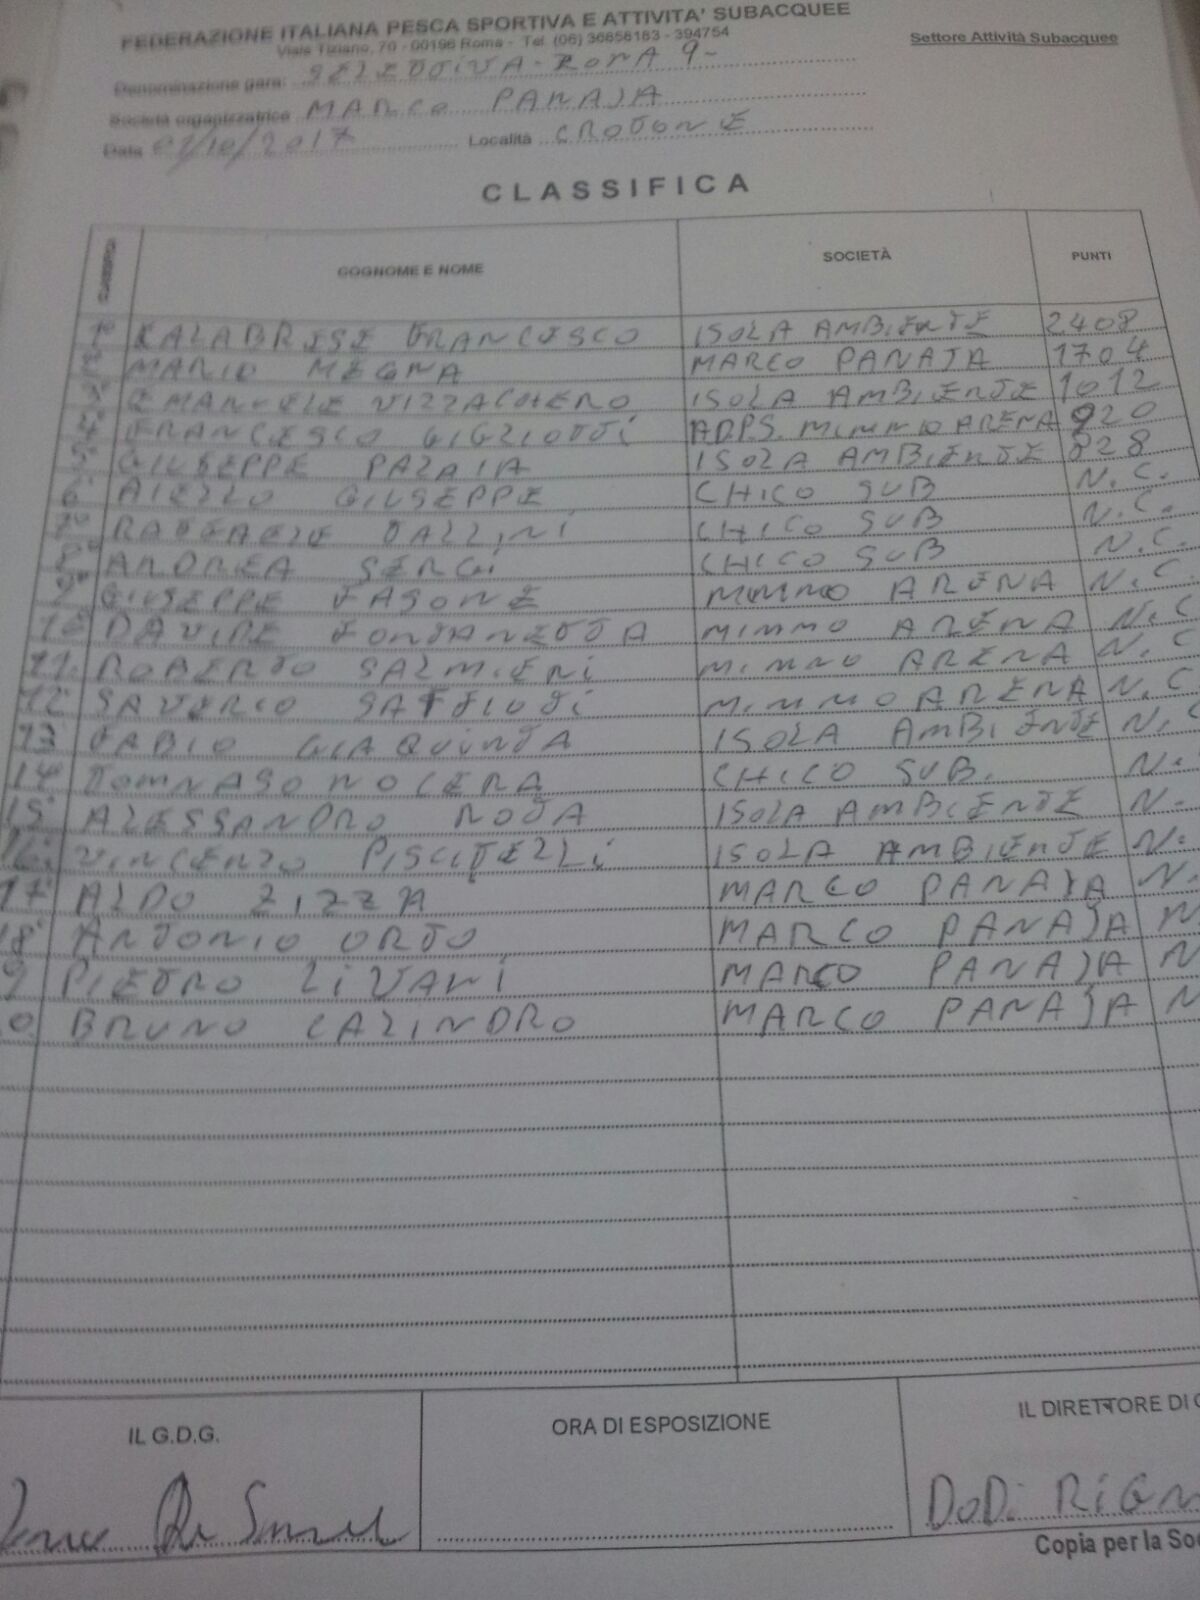 FEDERAZIONE ITALIANA PESCA SPORTIVA E ATTIVITA' SUBACQUEE
Viale Tiziano, 70 - 00196 Roma - Tel. (06) 36858183 - 394754
Settore Attività Subacquee
Denominazione gara: SELETTIVA - ZONA 9-
Società organizzatrice MARCO PANAJA
Data /10/2017 Località CROTONE
CLASSIFICA
CLASSIFICA COGNOME E NOME SOCIETÀ PUNTI
1° KALABRESE FRANCESCO ISOLA AMBIENTE 2408
2° MARIO MEGNA MARCO PANAJA 1704
3° EMANUELE VIZZACCHERO ISOLA AMBIENTE 1012
4° FRANCESCO GIGLIOTTI A.D.P.S. MIMMO ARENA 920
5° GIUSEPPE PALAIA ISOLA AMBIENTE 828
6° AIELLO GIUSEPPE CHICO SUB N.C.
7° RAFFAELE TALLINI CHICO SUB N.C.
8° ANDREA SERGI CHICO SUB N.C.
9° GIUSEPPE FASONE MIMMO ARENA N.C
10 DAVIDE FONTANETTA MIMMO ARENA N.C
11. ROBERTO SALMIERI MIMMO ARENA N.C
12 SAVERIO MIMMO ARENA N.C
13 FABIO GIAQUINTA ISOLA AMBIENTE N.C
14 TOMMASO NOCERA CHICO SUB. N.
15 ALESSANDRO ROTA ISOLA AMBIENTE N.
16 VINCENZO PISCITELLI ISOLA AMBIENTE N.
17 ALDO ZIZZA MARCO PANAJA N.
18 ANTONIO ORTO MARCO PANAJA N
9 PIETRO LIVANI MARCO PANAJA N
0 BRUNO CALINDRO MARCO PANAJA N
IL G.D.G. ORA DI ESPOSIZIONE IL DIRETTORE DI G
DODI RIGN
Copia per la Soc